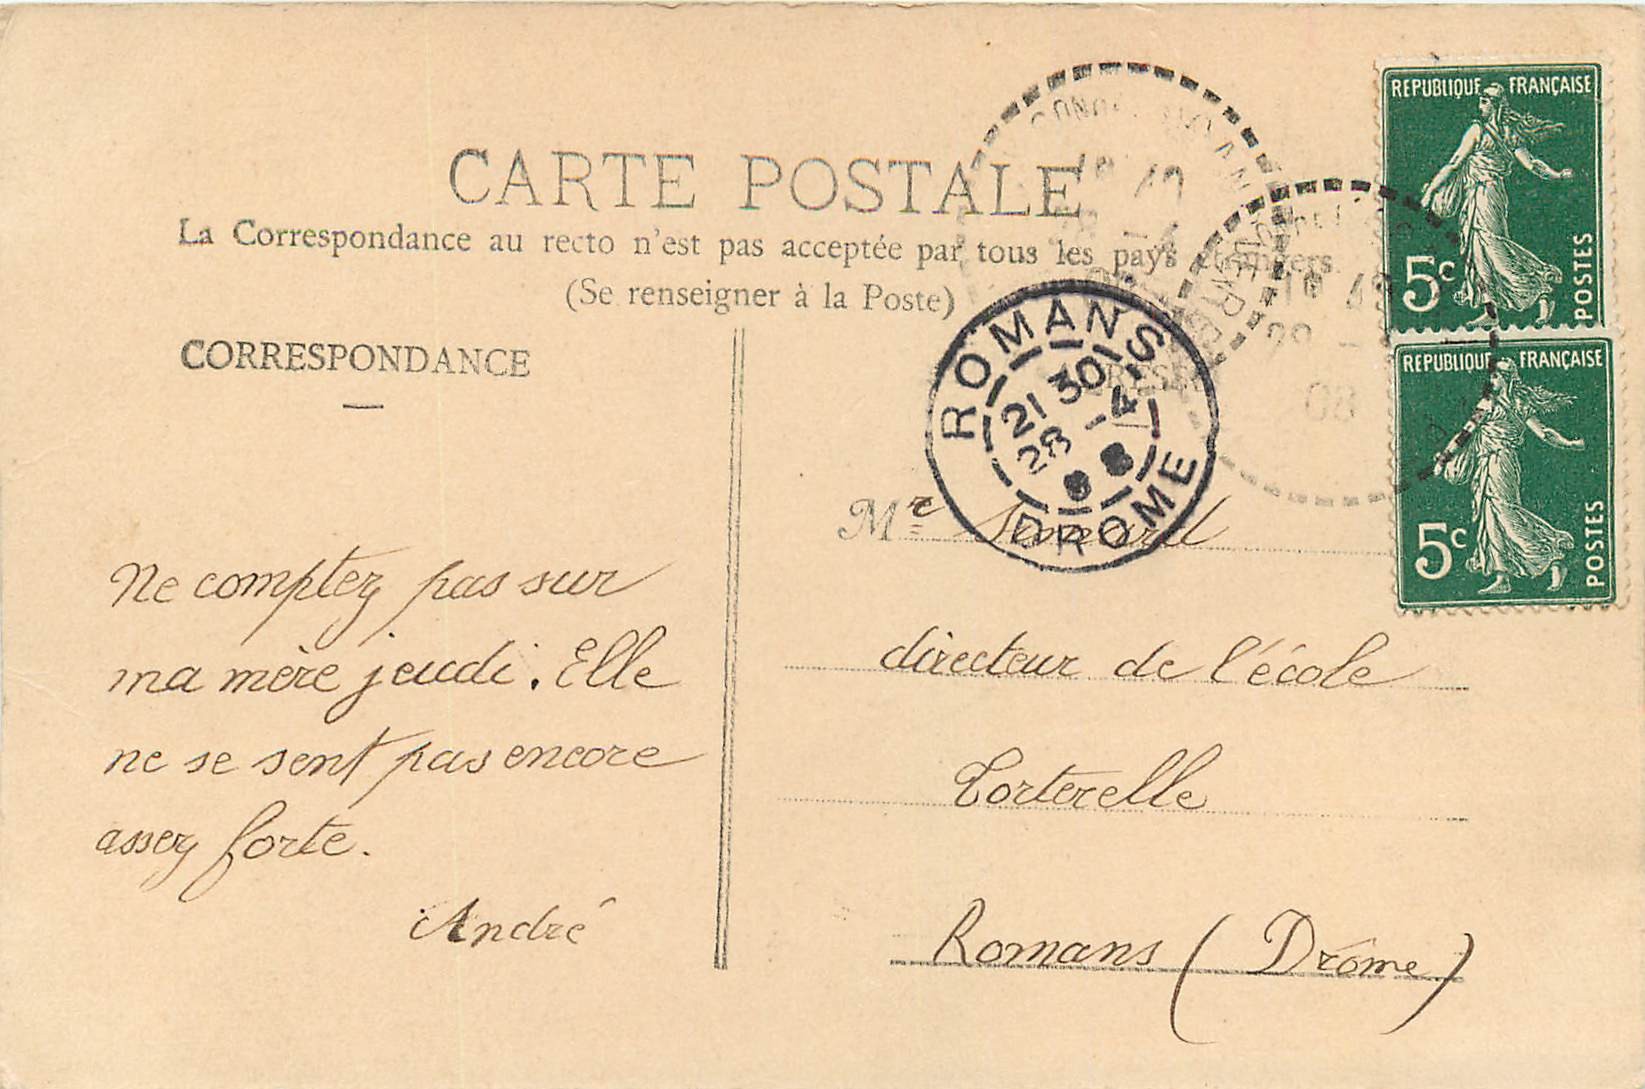 REPUBLIQUE FRANÇAISE
5c POSTES
REPUBLIQUE FRANÇAISE
5c POSTES
CARTE POSTALE
La Correspondance au recto n'est pas acceptée par tous les pays étrangers.
(Se renseigner à la Poste)
CORRESPONDANCE
ROMANS
21 30
28 -4
DROME
08
Ne comptez pas sur
ma mère jeudi. Elle
ne se sent pas encore
assez forte.
André
Mr Simard
directeur de l'école
Torterelle
Romans (Drôme)